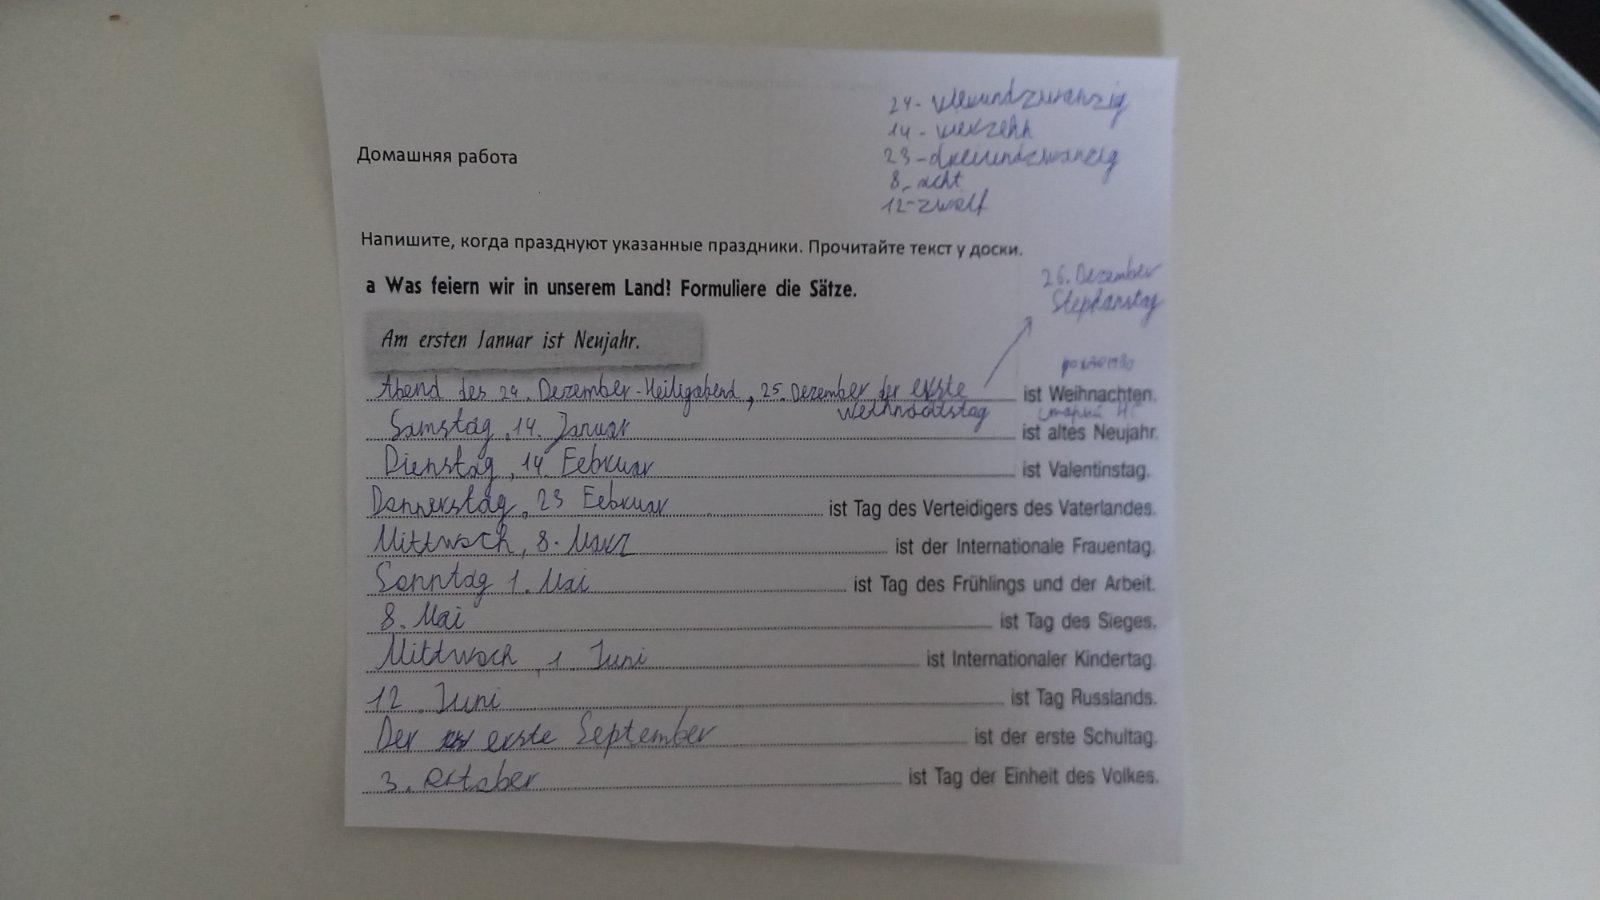 24- vierundzwanzig
14- vierzehn
23-dreiundzwanzig
8- acht
12-zwölf
Домашняя работа
Напишите, когда празднуют указанные праздники. Прочитайте текст у доски.
a Was feiern wir in unserem Land? Formuliere die Sätze.
26. Dezember
Stephanstag
Am ersten Januar ist Neujahr.
рождество
Abend des 24. Dezember-Heiligabend, 25. Dezember der erste ist Weihnachten.
Weihnachtstag старый Н.
Samstag, 14. Januar ist altes Neujahr.
Dienstag, 14. Februar ist Valentinstag.
Donnerstag, 23 Februar ist Tag des Verteidigers des Vaterlandes.
Mittwoch, 8. März ist der Internationale Frauentag.
Sonntag 1. Mai ist Tag des Frühlings und der Arbeit.
8. Mai ist Tag des Sieges.
Mittwoch, 1 Juni ist Internationaler Kindertag.
12. Juni ist Tag Russlands.
Der erste September ist der erste Schultag.
3. Oktober ist Tag der Einheit des Volkes.